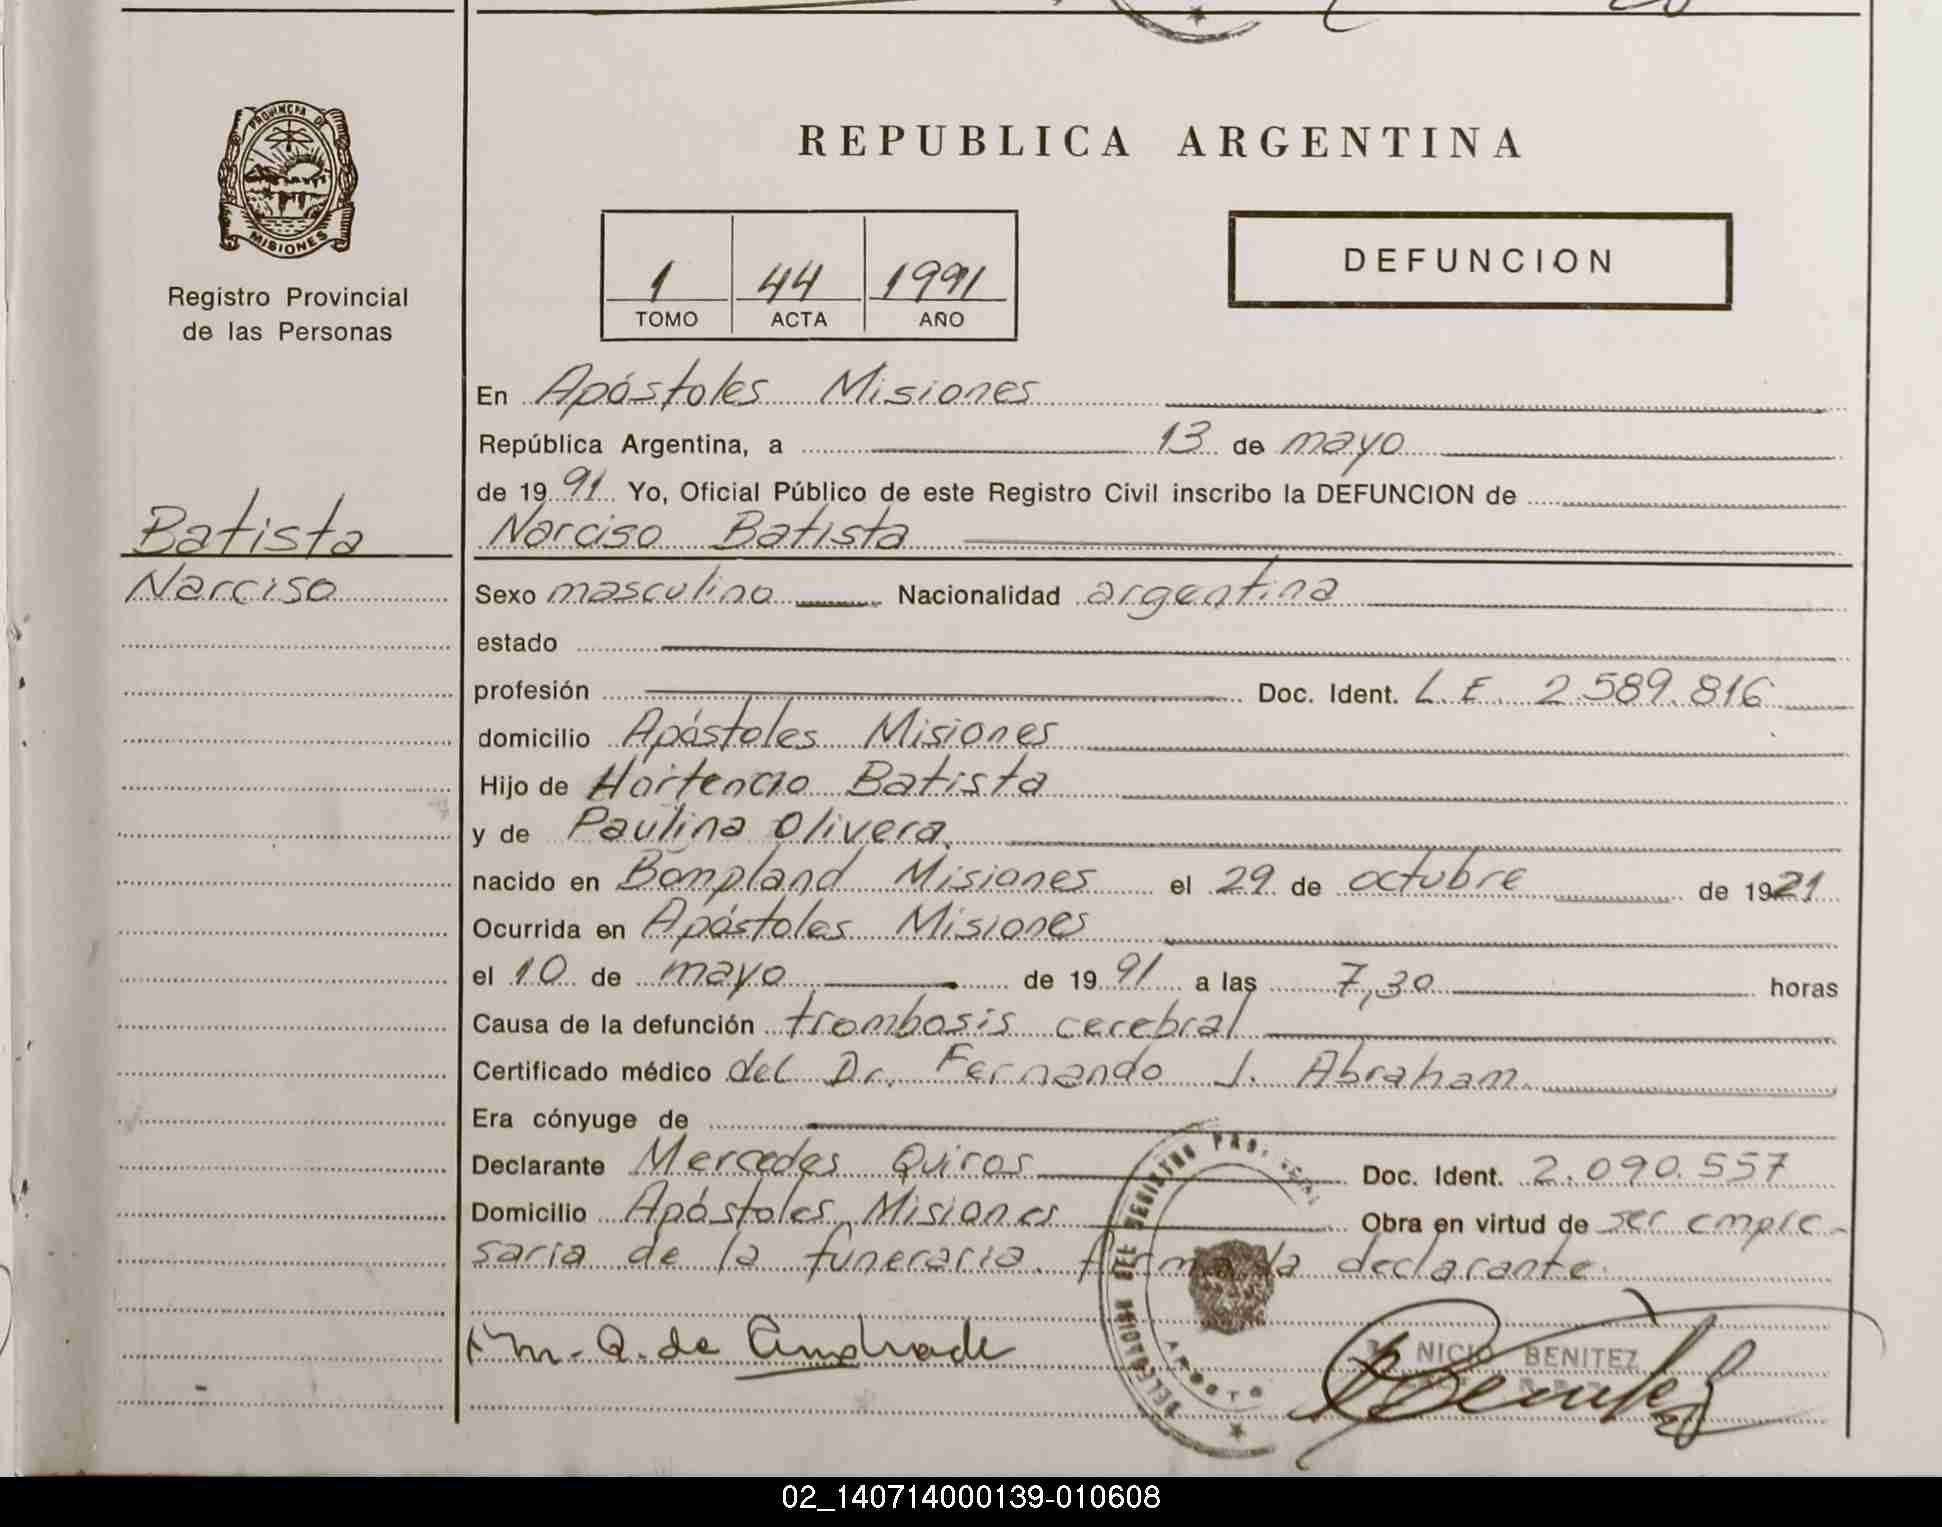 PROVINCIA D
MISIONES
Registro Provincial
de las Personas
REPUBLICA ARGENTINA
1 44 1991
TOMO ACTA AÑO
DEFUNCION
En Apóstoles Misiones
República Argentina, a 13 de mayo
de 1991 Yo, Oficial Público de este Registro Civil inscribo la DEFUNCION de
Batista
Narciso
Narciso Batista
Sexo masculino Nacionalidad argentina
estado
profesión Doc. Ident. L.E. 2.589.816
domicilio Apóstoles Misiones
Hijo de Hortencio Batista
y de Paulina Olivera.
nacido en Bompland Misiones el 29 de octubre de 1921
Ocurrida en Apóstoles Misiones
el 10 de mayo de 1991 a las 7,30 horas
Causa de la defunción trombosis cerebral
Certificado médico del Dr. Fernando J. Abraham.
Era cónyuge de
Declarante Mercedes Quiros Doc. Ident. 2.090.557
Domicilio Apóstoles, Misiones Obra en virtud de ser empre-
saria de la funeraria. firma la declarante.
m. Q. de Andrade
NICIO BENITEZ
02_140714000139-010608